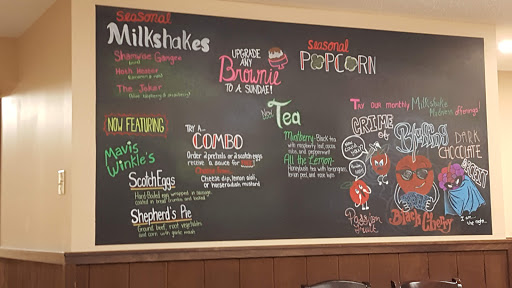 Seasonal
Milkshakes
Shamrock Ganger
Hath Heater
The Joker
UPGRADE
ANY
Brownie
TO A SUNDAE!
Seasonal
POPCORN
NOW FEATURING
Mavis
Winkle's
Scotch Eggs
Hard-Boiled egg wrapped in sausage,
coated in bread crumbs and baked
Shepherd's Pie
Ground beef, root vegetables
and corn with garlic mash
TRY A...
COMBO
Order 2 pretzels or 2 scotch eggs
receive a sauce for
Choose from...
Cheese dip, lemon aioli,
or horseradish mustard
New
Tea
Mastberry- Black tea
with raspberry leaf, cocoa
nibs, and peppermint
All the Lemon-
Honeybush tea with lemongrass,
lemon peel, and rose hips
Try our monthly Milkshake
Madness offerings!
CRIME
of
Passion
Fruit
Black Cherry
DARK
CHOCOLATE
I am
the night..